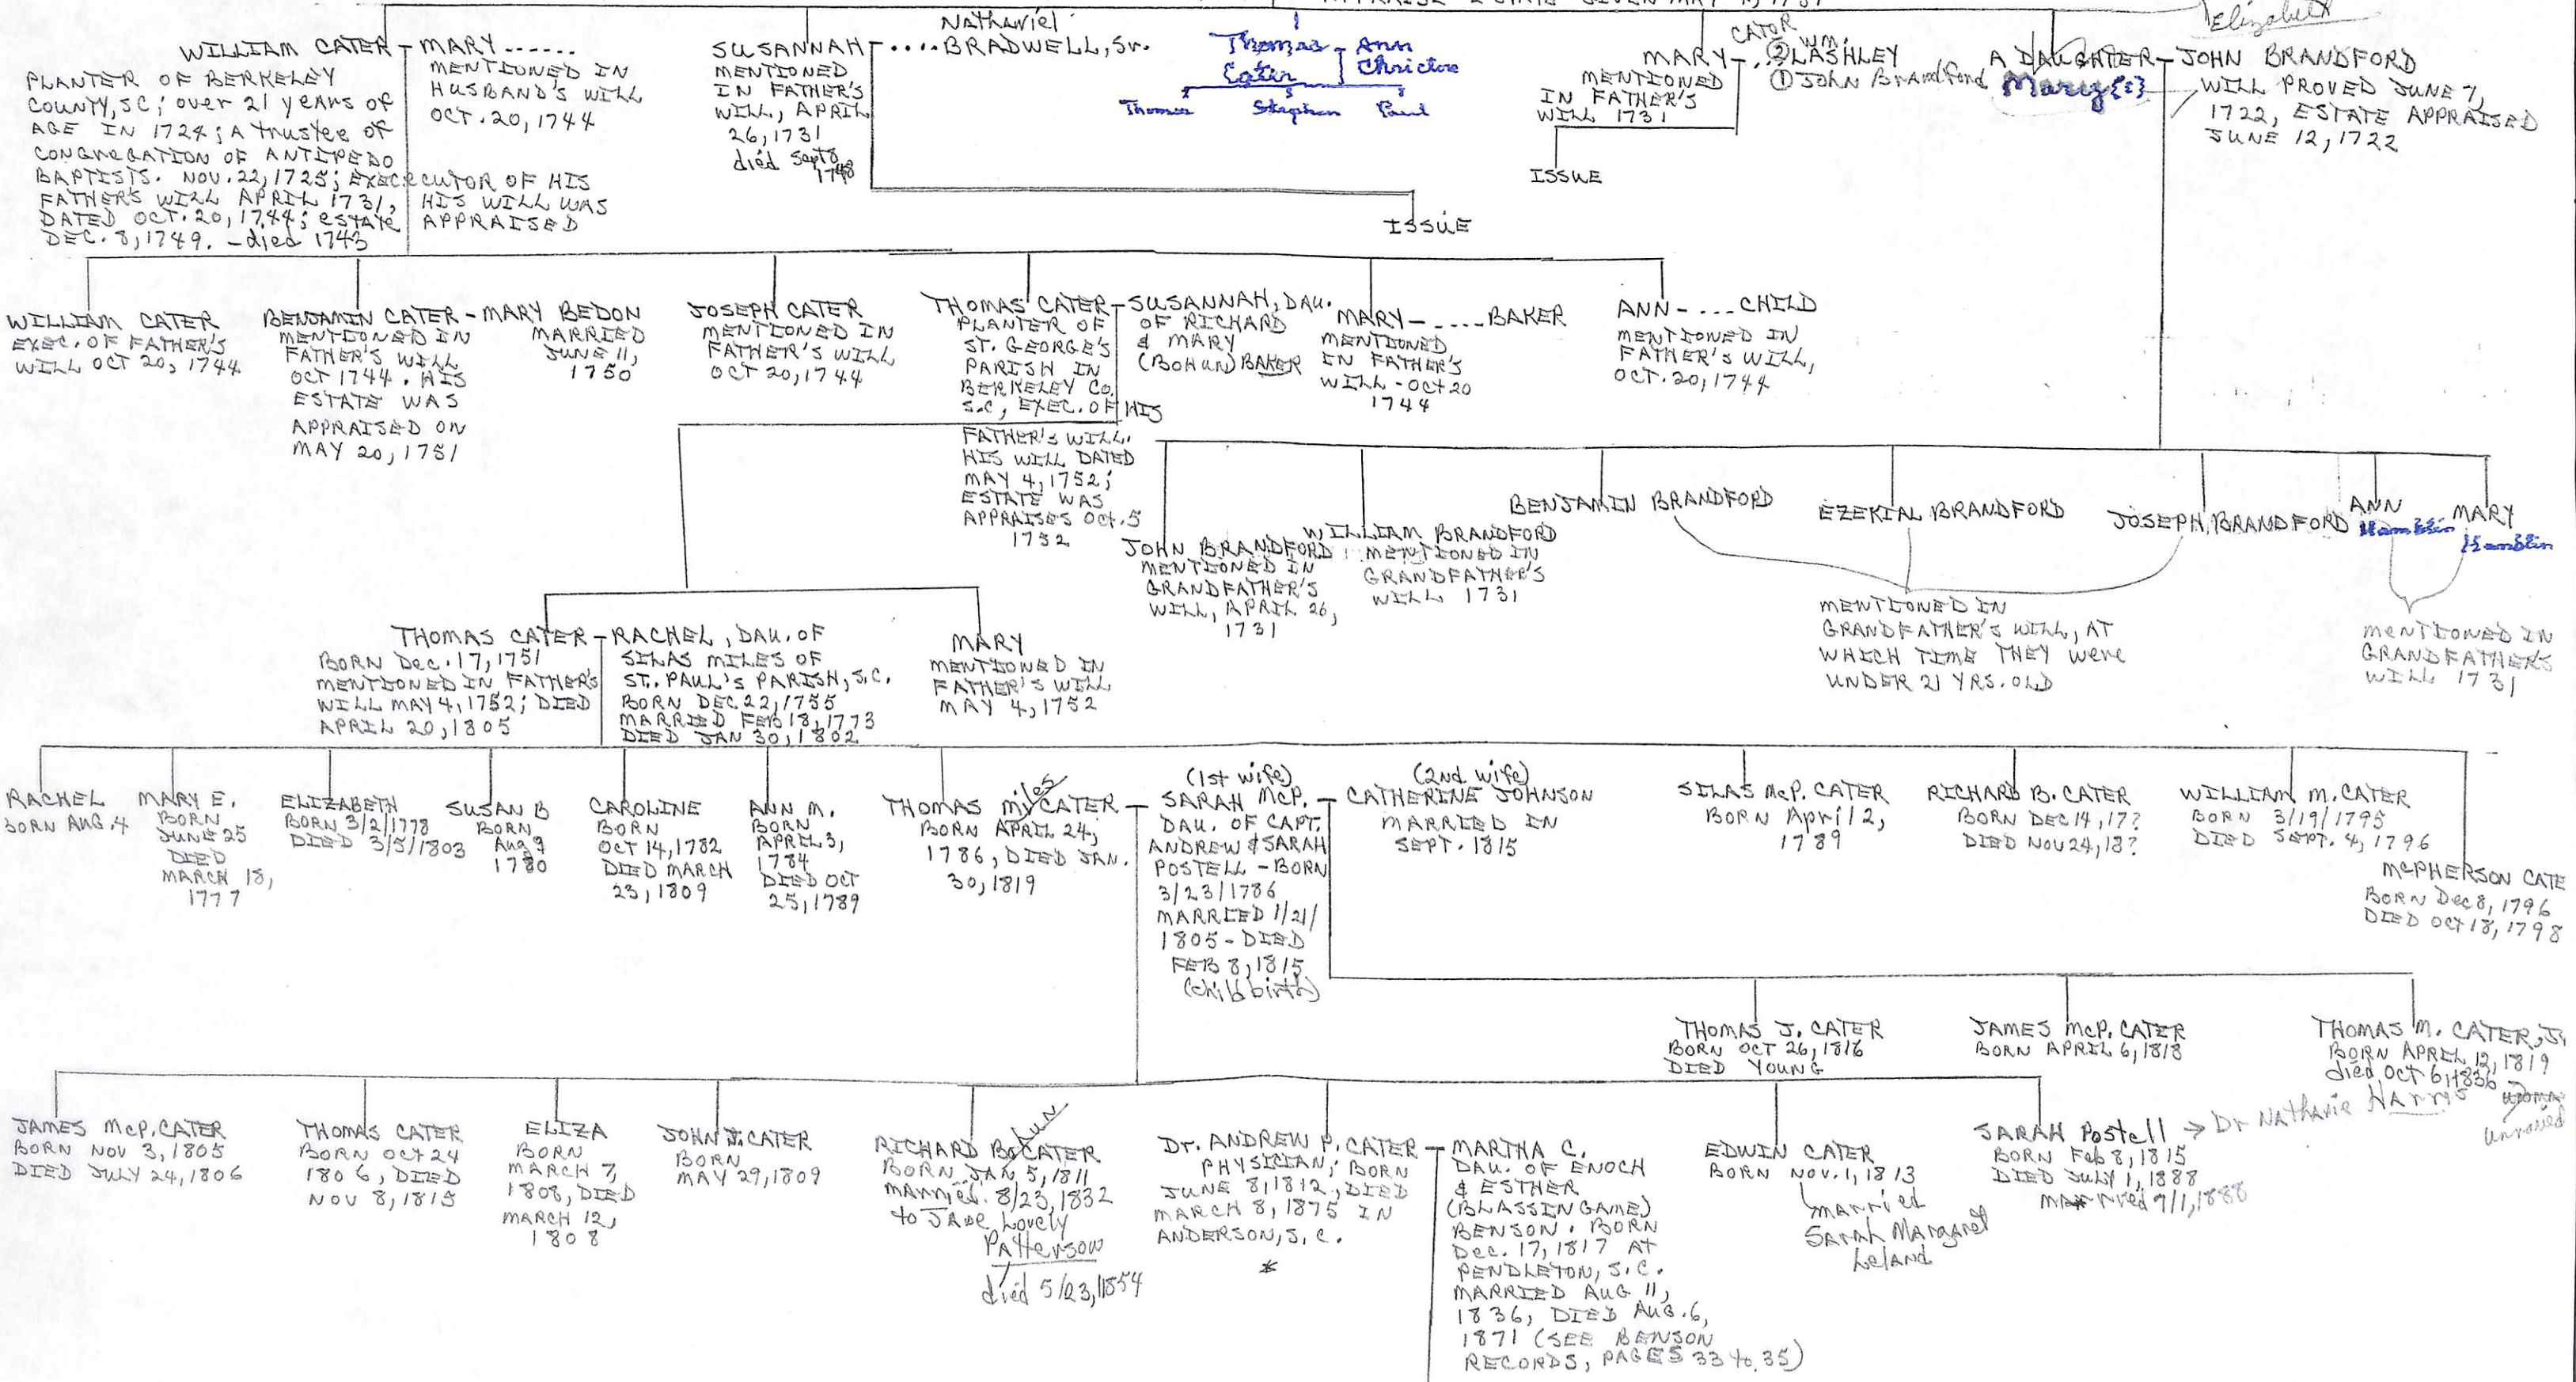 Elizabeth
WILLIAM CATER
PLANTER OF BERKELEY
COUNTY, SC; over 21 years OF
AGE IN 1724; A trustee OF
CONGREGATION OF ANTIPEDO
BAPTISTS. NOV. 22, 1725; EXECECUTOR OF HIS
FATHER'S WILL APRIL 1731, HIS WILL WAS
DATED OCT. 20, 1744; estate APPRAISED
DEC. 8, 1749. - died 1743
MARY ......
MENTIONED IN
HUSBAND'S WILL
OCT. 20, 1744
SUSANNAH
MENTIONED
IN FATHER'S
WILL, APRIL
26, 1731
died Sept 8
1748
Nathaniel
.... BRADWELL, Sr.
ISSUE
Thomas Ann
Cater Christie
Thomas Stephen Paul
MARY
MENTIONED
IN FATHER'S
WILL 1731
CATOR
② Wm.
LASHLEY
① John Brandford
ISSUE
A DAUGHTER
Mary {?}
JOHN BRANDFORD
WILL PROVED JUNE 7,
1722, ESTATE APPRAISED
JUNE 12, 1722
WILLIAM CATER
EXEC. OF FATHER'S
WILL OCT 20, 1744
BENJAMIN CATER
MENTIONED IN
FATHER'S WILL
OCT 1744. HIS
ESTATE WAS
APPRAISED ON
MAY 20, 1751
MARY BEDON
MARRIED
JUNE 11,
1750
JOSEPH CATER
MENTIONED IN
FATHER'S WILL
OCT 20, 1744
THOMAS CATER
PLANTER OF
ST. GEORGE'S
PARISH IN
BERKELEY CO.
S.C, EXEC. OF HIS
FATHER'S WILL.
HIS WILL DATED
MAY 4, 1752;
ESTATE WAS
APPRAISES Oct. 5
1752
SUSANNAH, DAU.
OF RICHARD
& MARY
(BOHUN) BAKER
MARY - .... BAKER
MENTIONED
IN FATHER'S
WILL - Oct 20
1744
ANN - .... CHILD
MENTIONED IN
FATHER'S WILL,
OCT. 20, 1744
JOHN BRANDFORD
MENTIONED IN
GRANDFATHER'S
WILL, APRIL 26,
1731
WILLIAM BRANDFORD
MENTIONED IN
GRANDFATHER'S
WILL 1731
BENJAMIN BRANDFORD
EZEKIAL BRANDFORD
JOSEPH BRANDFORD
MENTIONED IN
GRANDFATHER'S WILL, AT
WHICH TIME THEY were
UNDER 21 YRS. OLD
ANN
Hamblin
MARY
Hamblin
MENTIONED IN
GRANDFATHER'S
WILL 1731
THOMAS CATER
BORN Dec. 17, 1751
MENTIONED IN FATHER'S
WILL MAY 4, 1752; DIED
APRIL 20, 1805
RACHEL, DAU. OF
SILAS MILES OF
ST. PAUL'S PARISH, S.C.
BORN DEC 22, 1755
MARRIED FEB 18, 1773
DIED JAN 30, 1802
MARY
MENTIONED IN
FATHER'S WILL
MAY 4, 1752
RACHEL
BORN AUG. 4
MARY E.
BORN
JUNE 25
DIED
MARCH 18,
1777
ELIZABETH
BORN 3/2/1778
DIED 3/5/1803
SUSAN B
BORN
Aug 9
1780
CAROLINE
BORN
OCT 14, 1782
DIED MARCH
23, 1809
ANN M.
BORN
APRIL 3,
1784
DIED OCT
25, 1789
THOMAS Miles CATER
BORN APRIL 24,
1786, DIED JAN.
30, 1819
(1st wife)
SARAH McP.
DAU. OF CAPT.
ANDREW & SARAH
POSTELL - BORN
3/23/1786
MARRIED 1/21/
1805 - DIED
FEB 8, 1815
(childbirth)
(2nd wife)
CATHERINE JOHNSON
MARRIED IN
SEPT. 1815
SILAS McP. CATER
BORN April 2,
1789
RICHARD B. CATER
BORN DEC 14, 17?
DIED NOV 24, 18?
WILLIAM M. CATER
BORN 3/19/1795
DIED SEPT. 4, 1796
McPHERSON CATE
BORN Dec 8, 1796
DIED Oct 18, 1798
THOMAS J. CATER
BORN OCT 26, 1816
DIED YOUNG
JAMES McP. CATER
BORN APRIL 6, 1818
THOMAS M. CATER, Jr
BORN APRIL 12, 1819
died Oct 6, 1836
unmarried
JAMES McP. CATER
BORN NOV 3, 1805
DIED JULY 24, 1806
THOMAS CATER
BORN OCT 24
1806, DIED
NOV 8, 1815
ELIZA
BORN
MARCH 7,
1808, DIED
MARCH 12,
1808
JOHN J. CATER
BORN
MAY 29, 1809
RICHARD Bohun CATER
BORN JAN 5, 1811
married 8/23, 1832
to JANE Lovely
Patterson
died 5/23, 1854
Dr. ANDREW P. CATER
PHYSICIAN; BORN
JUNE 8, 1812, DIED
MARCH 8, 1875 IN
ANDERSON, S.C.
*
MARTHA C.
DAU. OF ENOCH
& ESTHER
(BLASSINGAME)
BENSON. BORN
Dec. 17, 1817 AT
PENDLETON, S.C.
MARRIED AUG 11,
1836, DIED AUG. 6,
1871 (SEE BENSON
RECORDS, PAGES 33 to 35)
EDWIN CATER
BORN NOV. 1, 1813
married
Sarah Margaret
Leland
SARAH Postell → Dr Nathanie Harris
BORN Feb 8, 1815
DIED JULY 1, 1888
married 9/1, 1888